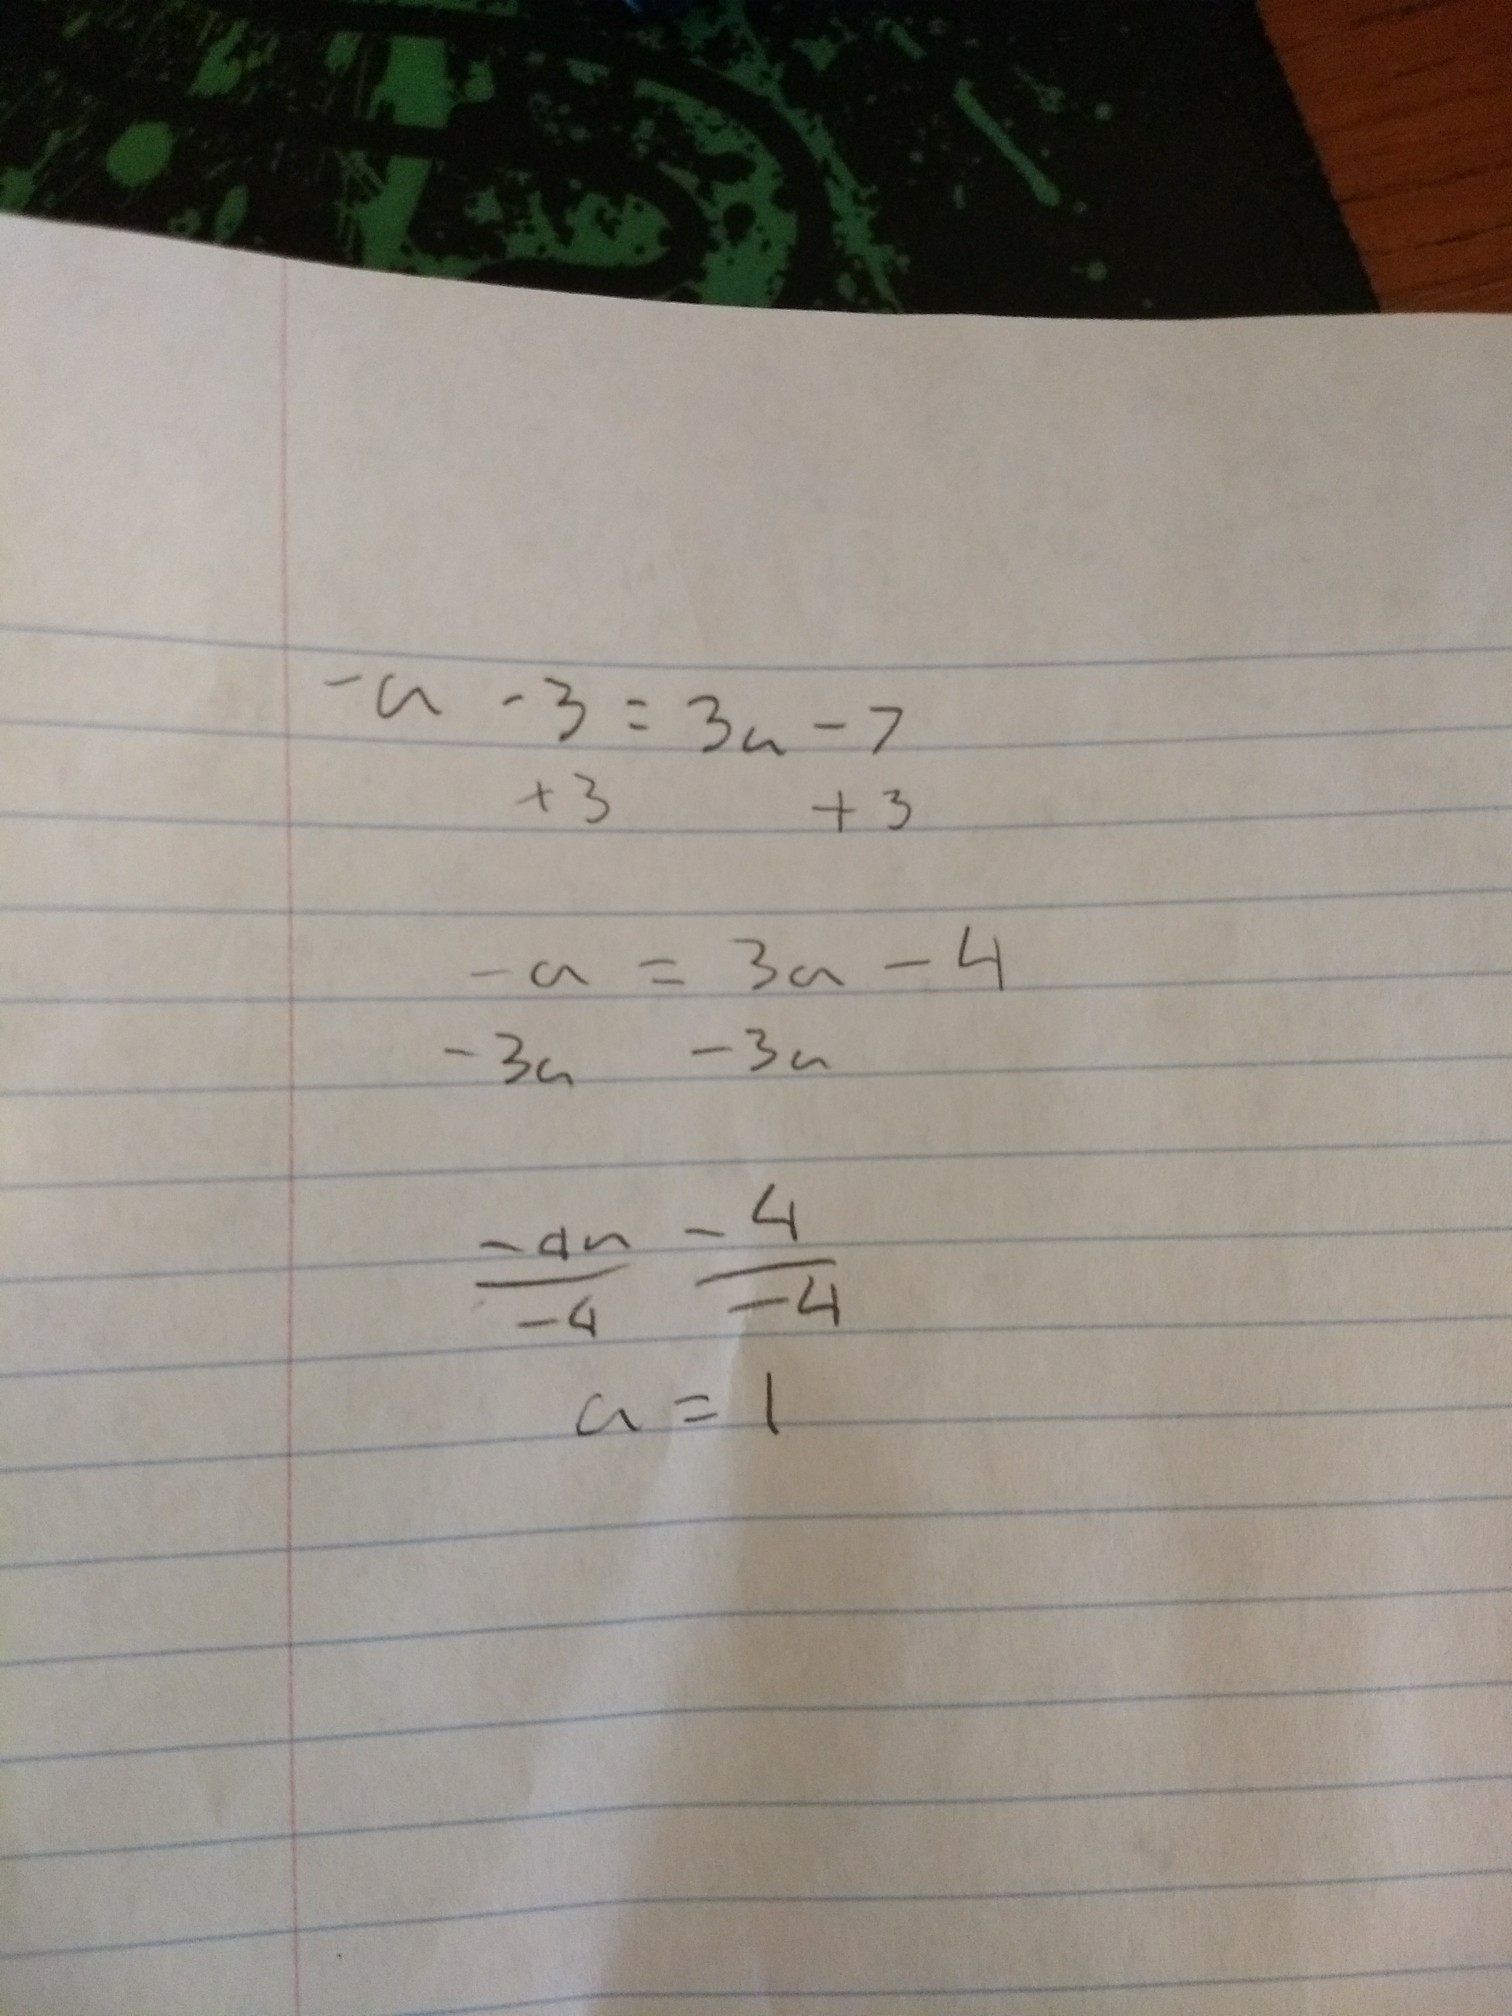 -a -3 = 3a - 7
+3 +3
-a = 3a - 4
-3a -3a
-4a - 4
-4 -4
a = 1